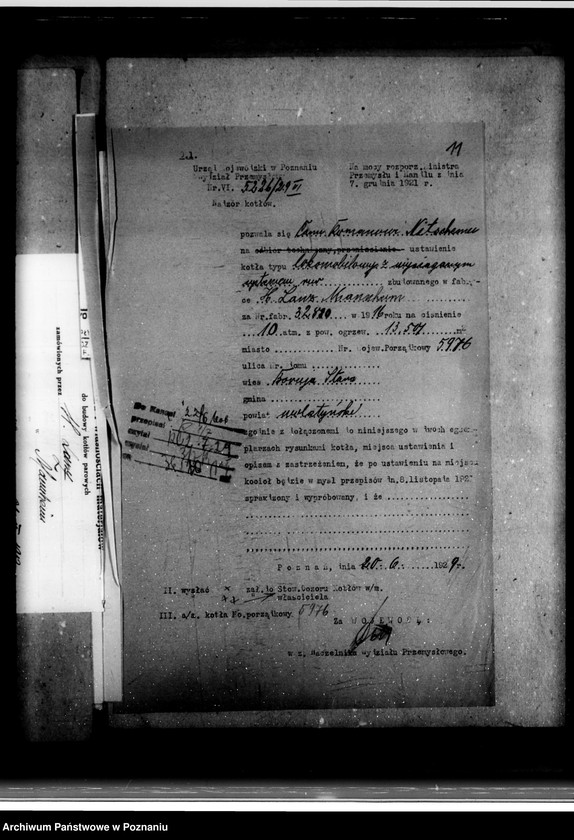 11
Urząd Wojewódzki w Poznaniu
Wydział Przemysłowy
Nr.VI. 5226/29 VI
Nadzór kotłów.
Na mocy rozporz. Ministra
Przemysłu i Handlu z dnia
7. grudnia 1921 r.
pozwala się Panu Romanowi
na odbiór techniczny, przeniesienie ustawienie
kotła typu lokomobilowego z wyciąganym
systemem rur zbudowanego w fabry-
ce H. Lanz Mannheim
za Nr.fabr. 32880 w 1916 roku na ciśnienie
10 atm. z pow. ogrzew. 13.501 m²
miasto Nr. Wojew.Porządkowy 5976
ulica Nr. domu
wieś Boruja Stara
gmina
powiat wolsztyński
zgodnie z dołączonemi do niniejszego w dwóch egzem-
plarzach rysunkami kotła, miejsca ustawienia i
opisem z zastrzeżeniem, że po ustawieniu na miejscu
kocioł będzie w myśl przepisów dn. 8. listopada 192
sprawdzony i wypróbowany, i że
Poznań, dnia 20. 6. 1929.
II. wysłać zał. do Stow. Dozoru Kotłów w/m.
właściciela
III. a/z. kotła No.porządkowy 5976
Za WOJEWODĘ:
w z. Naczelnika Wydziału Przemysłowego.
Do Kancel. 22/6
przepisał
czytał
wysłał
zamówionych przez
H. Lanz
Mannheim
do budowy kotłów parowych
Archiwum Państwowe w Poznaniu